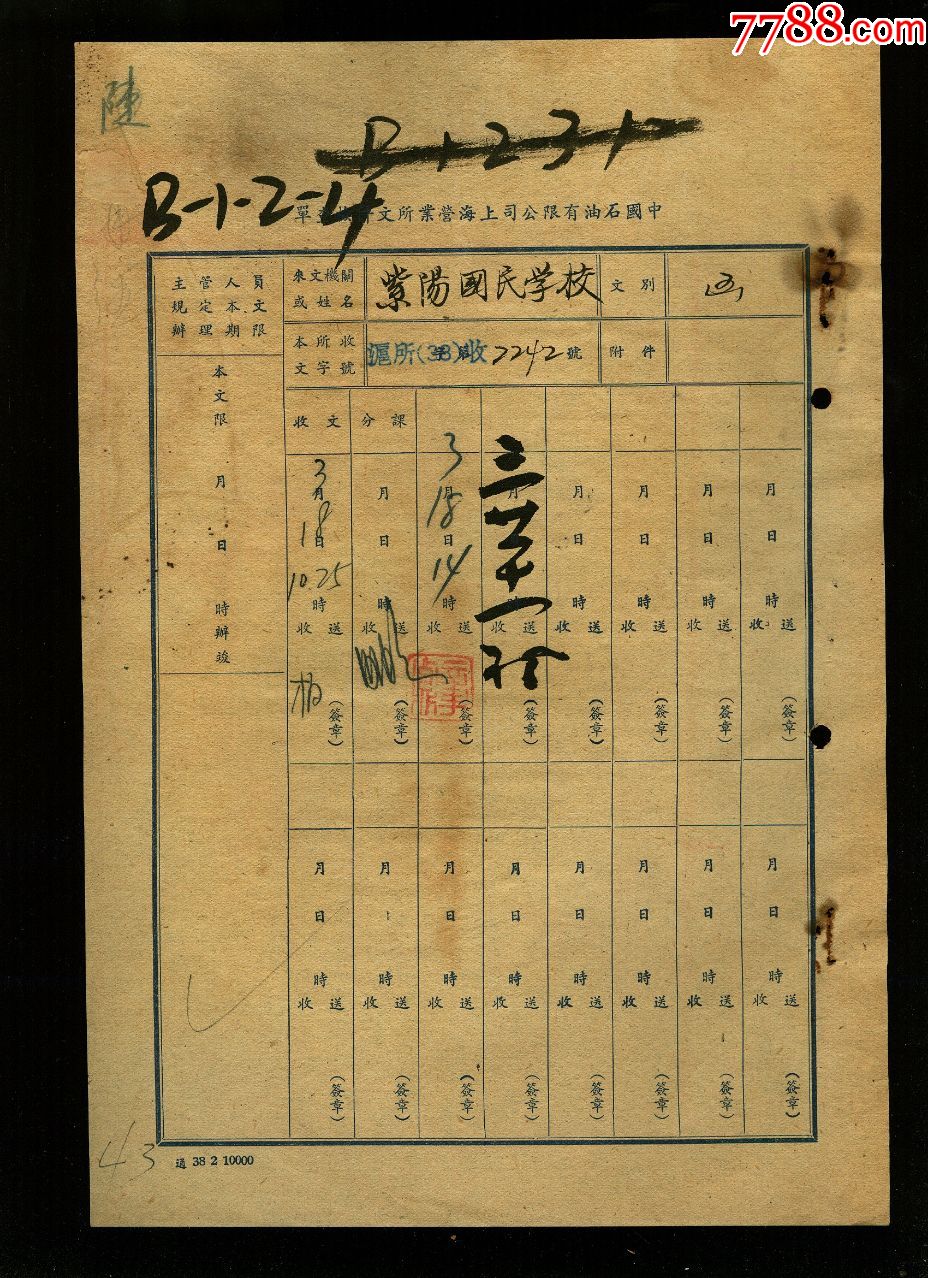 7788.com
中国收藏热线
陸
B-1231
B-1-2-4
中國石油有限公司上海營業所文單
主管人員
規定本文
辦理期限
來文機關
或姓名
紫陽國民学校
文別
函
本所收
文字號
滬所(38)收7242號
附件
本文限 月 日 時辦竣
收文 分課
3月18日10.25時 收送 (簽章)
月 日 時 收送 (簽章)
3月18日14時 收送 (簽章)
月 時 收送 (簽章)
月 日 時 收送 (簽章)
月 日 時 收送 (簽章)
月 日 時 收送 (簽章)
月 日 時 收送 (簽章)
月 日 時 收送 (簽章)
月 時 收送 (簽章)
月 日 時 收送 (簽章)
月 日 時 收送 (簽章)
月 日 時 收送 (簽章)
月 日 時 收送 (簽章)
月 日 時 收送 (簽章)
月 日 時 收送 (簽章)
43
通 38 2 10000